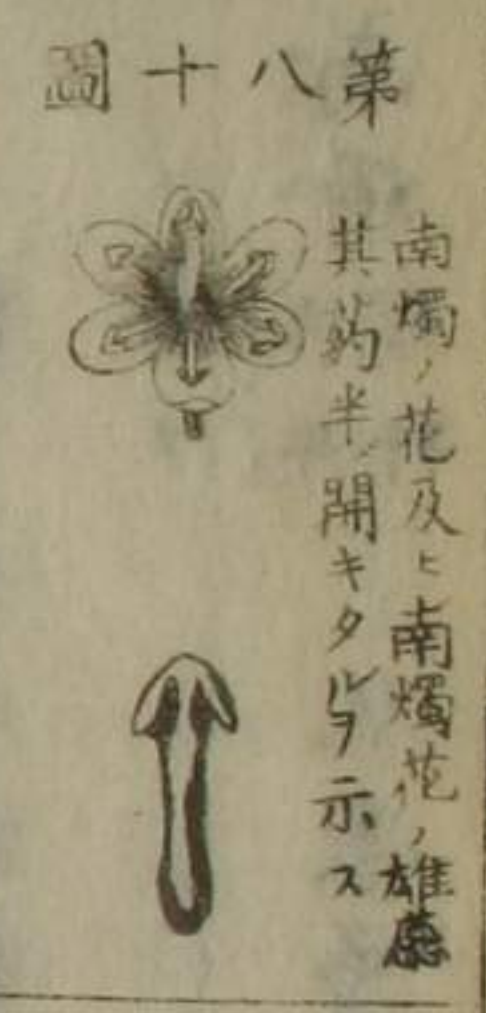 第八十圖
南燭ノ花及ヒ南燭花ノ雄蕊
其葯半ハ開キタルヲ示ス